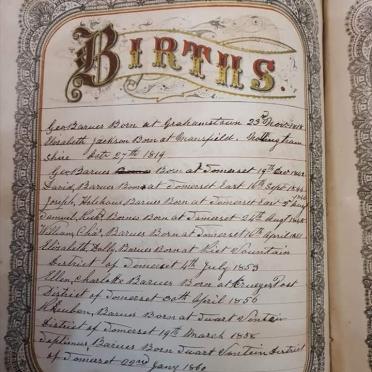 BIRTHS.
Geo Barnes Born at Grahamstown 23rd Novr
Elizabeth Jackson Born at Mansfield. Nottingham
Shire Octr 27th 1819
Geo Barnes Born at Somerset 19th Decr
David, Barnes Born at Somerset East 16th Sept 1844
Joseph, Barnes Born at Somerset East
Samuel, Barnes Born at Somerset 24th Augt
William Chas, Barnes Born at Somerset 16th April
Elizabeth Barnes Born at
District of Somerset 4th July 1853
Ellen, Charlotte Barnes Born at Kruegers Post
District of Somerset 30th April 1856
Reuben, Barnes Born at Swart Fontein
District of Somerset 19th March 1858
Septimus, Barnes Born Swart Fontein District
of Somerset 22nd Jany 1860